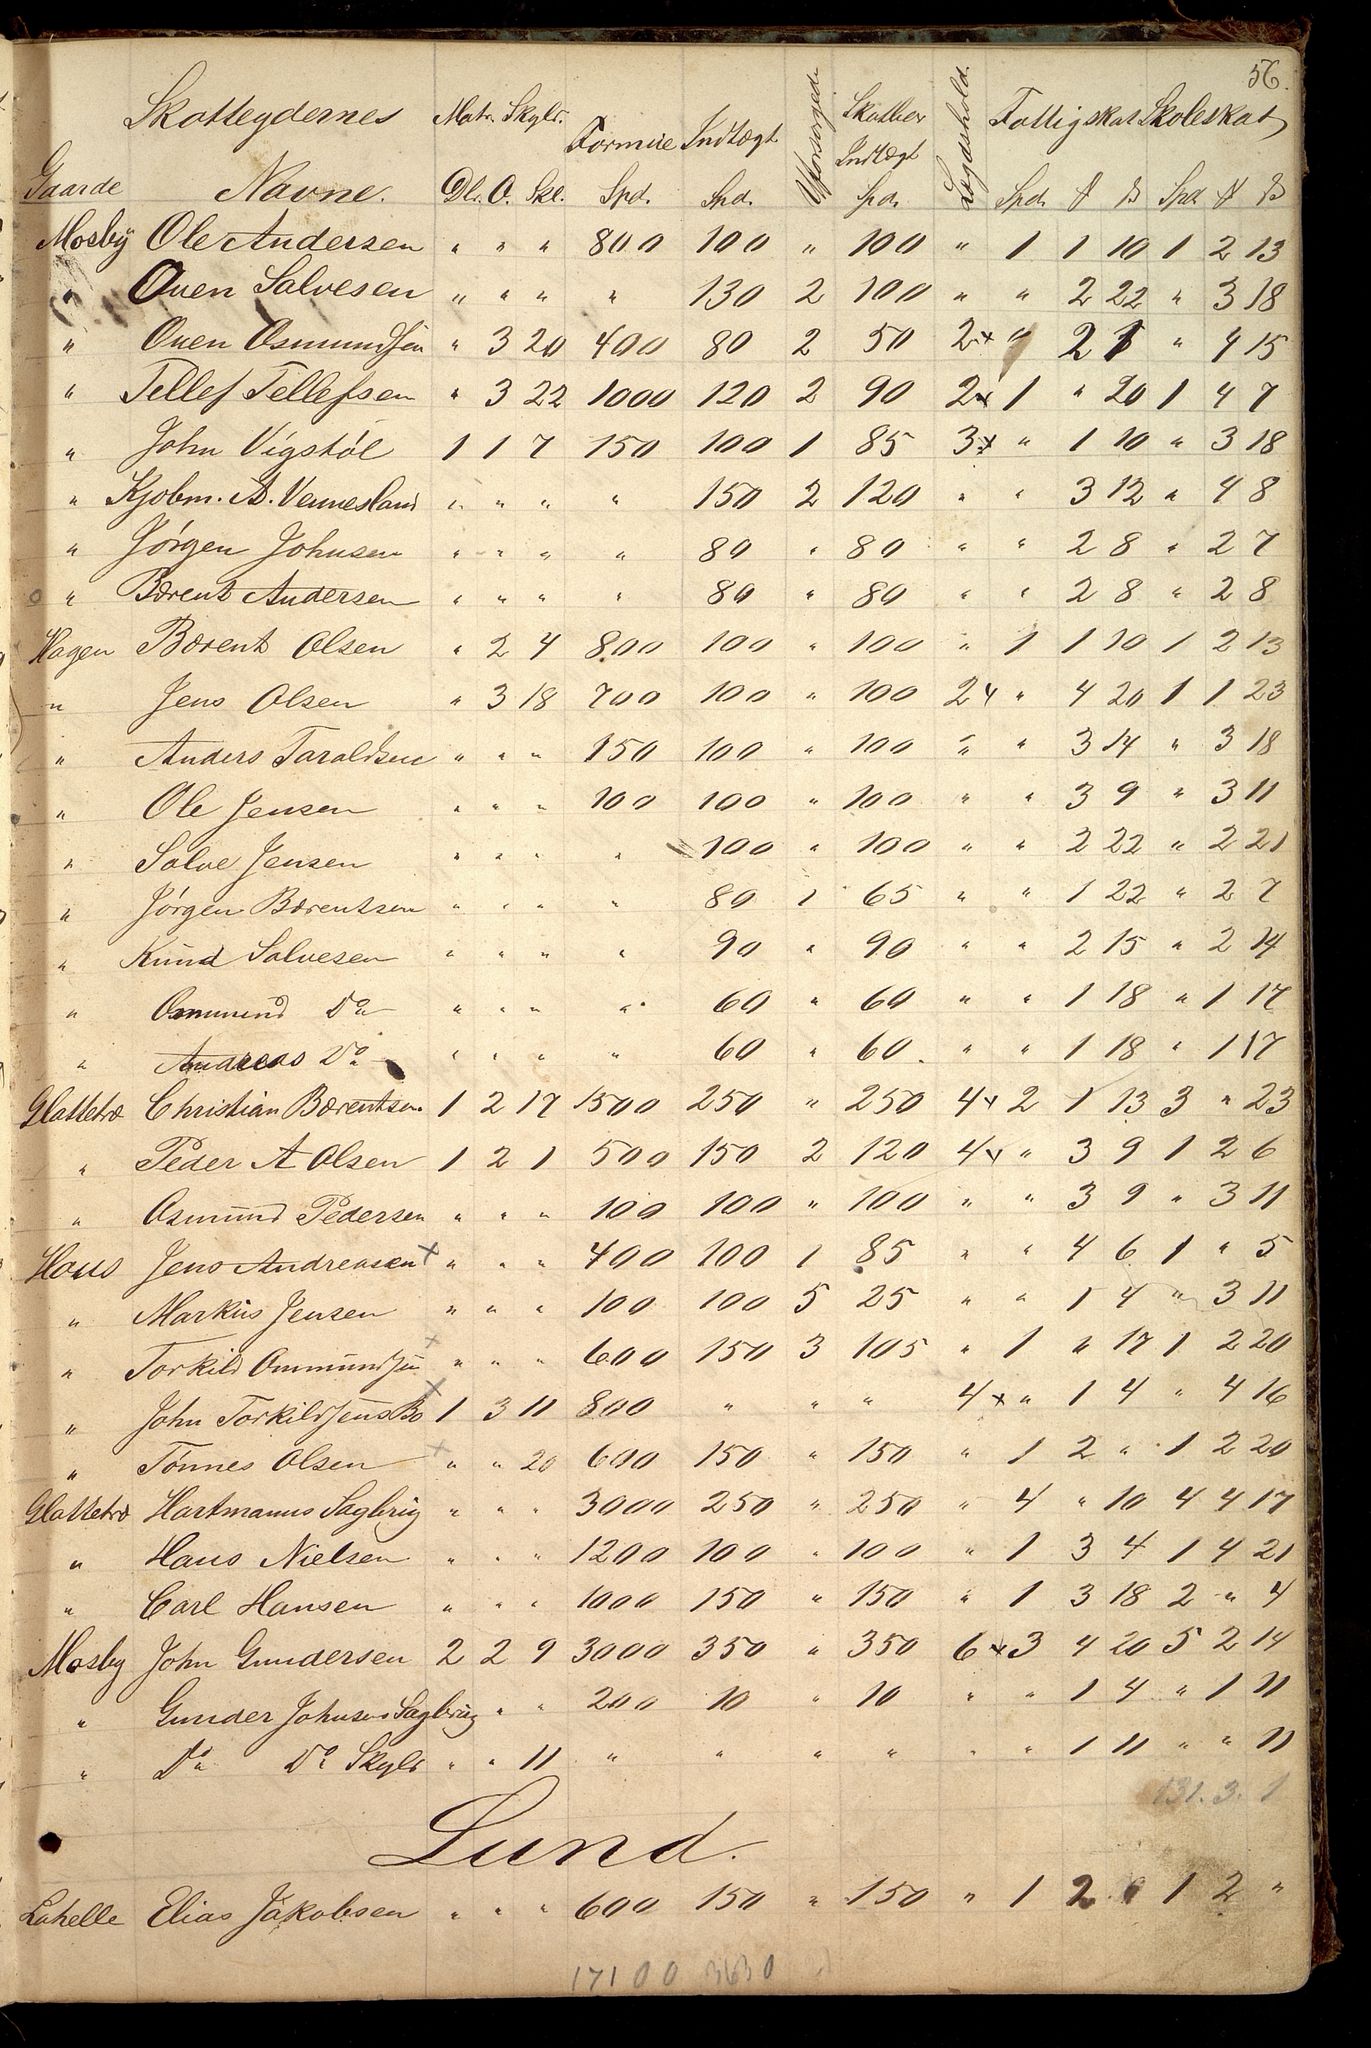 56.
Skatteydernes Matr. Skyld. Formue Indtægt Uforsørgede Skatbar Indtægt Lægdshold. Fattigskat Skoleskat
Gaarde Navne. Dl. O. Skl. Spd. Spd. Spd. Spd. ß Spd. ß
Mosby Ole Andersen " " " 800 100 " 100 " 1 1 10 1 2 13
" Ouen Salvesen " " " " 130 2 100 " " 2 22 " 3 18
" Ouen Osmundsen " 3 20 400 80 2 50 2x " 2 1 " 4 15
" Tellef Tellefsen " 3 22 1000 120 2 90 2x 1 " 20 1 4 7
" John Vigstöl 1 1 7 150 100 1 85 3x " 1 10 " 3 18
" Kjøbm. A. Vennesland " " " " 150 2 120 " " 3 12 " 4 8
" Jørgen Johnsen " " " " 80 " 80 " " 2 8 " 2 7
o " Bærent Andersen " " " " 80 " 80 " " 2 8 " 2 8
Hagen Bærent Olsen " 2 4 800 100 " 100 " 1 1 10 1 2 13
" Jens Olsen " 3 18 700 100 " 100 2x " 4 20 1 1 23
" Anders Taraldsen " " " 150 100 " 100 " " 3 14 " 3 18
" Ole Jensen " " " 100 100 " 100 " " 3 9 " 3 11
" Salve Jensen " " " " 100 " 100 " " 2 22 " 2 21
" Jørgen Bærentsen " " " " 80 1 65 " " 1 22 " 2 7
" Knud Salvesen " " " " 90 " 90 " " 2 15 " 2 14
" Osmund Do " " " " 60 " 60 " " 1 18 " 1 17
" Andreas Do " " " " 60 " 60 " " 1 18 " 1 17
Glattetræ Christian Bærentsen 1 2 17 1500 250 " 250 4x 2 1 13 3 " 23
" Peder A Olsen 1 2 1 500 150 2 120 4x " 3 9 1 2 6
" Osmund Pedersen " " " 100 100 " 100 " " 3 9 " 3 11
Haus Jens Andreasen x " " " 400 100 1 85 " " 4 6 1 " 5
" Markus Jensen " " " 100 100 5 25 " " 1 4 " 3 11
" Torkild Ommundsen x " " " 600 150 3 105 " 1 " 17 1 2 20
" John Torkildsens Bo x 1 3 11 800 " " " 4x " 1 4 " 4 16
" Tønnes Olsen x " " 20 600 150 " 150 " 1 2 " 1 2 20
Glattetræ Hartmanns Sagbrug " " " 3000 250 " 250 " 4 " 10 4 4 17
" Hans Nielsen " " " 1200 100 " 100 " 1 3 4 1 4 21
" Carl Hansen " " " 1000 150 " 150 " 1 3 18 2 " 4
Mosby John Gundersen 2 2 9 3000 350 " 350 6x 3 4 20 5 2 14
" Gunder Johnsens Sagbrug " " 200 10 " 10 " " 1 4 " 1 11
" Do Do Skyld " " 11 " " " " " " 1 11 " " 11
131. 3. 1
Lund.
Lahelle Elias Jakobsen " " " 600 150 " 150 " 1 2 " 1 2 "
17100 3630